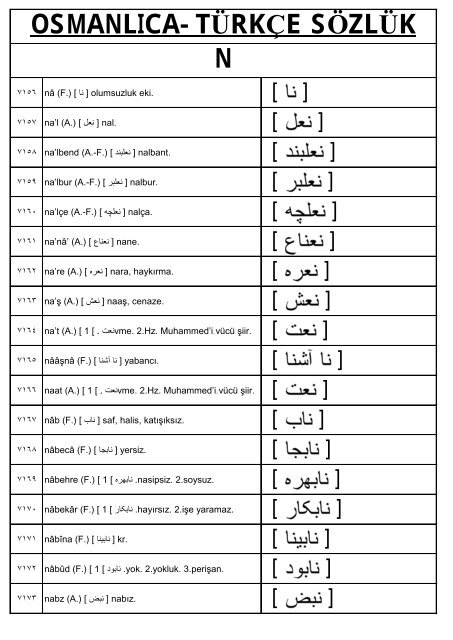 OSMANLICA- TÜRKÇE SÖZLÜK
N
٧١٥٦ nâ (F.) [ نا ] olumsuzluk eki. [ نا ]
٧١٥٧ na'l (A.) [ نعل ] nal. [ نعل ]
٧١٥٨ na'lbend (A.-F.) [ نعلبند ] nalbant. [ نعلبند ]
٧١٥٩ na'lbur (A.-F.) [ نعلبر ] nalbur. [ نعلبر ]
٧١٦٠ na'lçe (A.-F.) [ نعلچه ] nalça. [ نعلچه ]
٧١٦١ na'nâ' (A.) [ نعناع ] nane. [ نعناع ]
٧١٦٢ na're (A.) [ نعره ] nara, haykırma. [ نعره ]
٧١٦٣ na'ş (A.) [ نعش ] naaş, cenaze. [ نعش ]
٧١٦٤ na't (A.) [ نعت . [ 1vme. 2.Hz. Muhammed'i vücü şiir. [ نعت ]
٧١٦٥ nââşnâ (F.) [ نا آشنا ] yabancı. [ نا آشنا ]
٧١٦٦ naat (A.) [ نعت . [ 1vme. 2.Hz. Muhammed'i vücü şiir. [ نعت ]
٧١٦٧ nâb (F.) [ ناب ] saf, halis, katışıksız. [ ناب ]
٧١٦٨ nâbecâ (F.) [ نابجا ] yersiz. [ نابجا ]
٧١٦٩ nâbehre (F.) [ نابهره [ 1.nasipsiz. 2.soysuz. [ نابهره ]
٧١٧٠ nâbekâr (F.) [ نابكار [ 1.hayırsız. 2.işe yaramaz. [ نابكار ]
٧١٧١ nâbîna (F.) [ نابينا ] kr. [ نابينا ]
٧١٧٢ nâbûd (F.) [ نابود [ 1.yok. 2.yokluk. 3.perişan. [ نابود ]
٧١٧٣ nabz (A.) [ نبض ] nabız. [ نبض ]